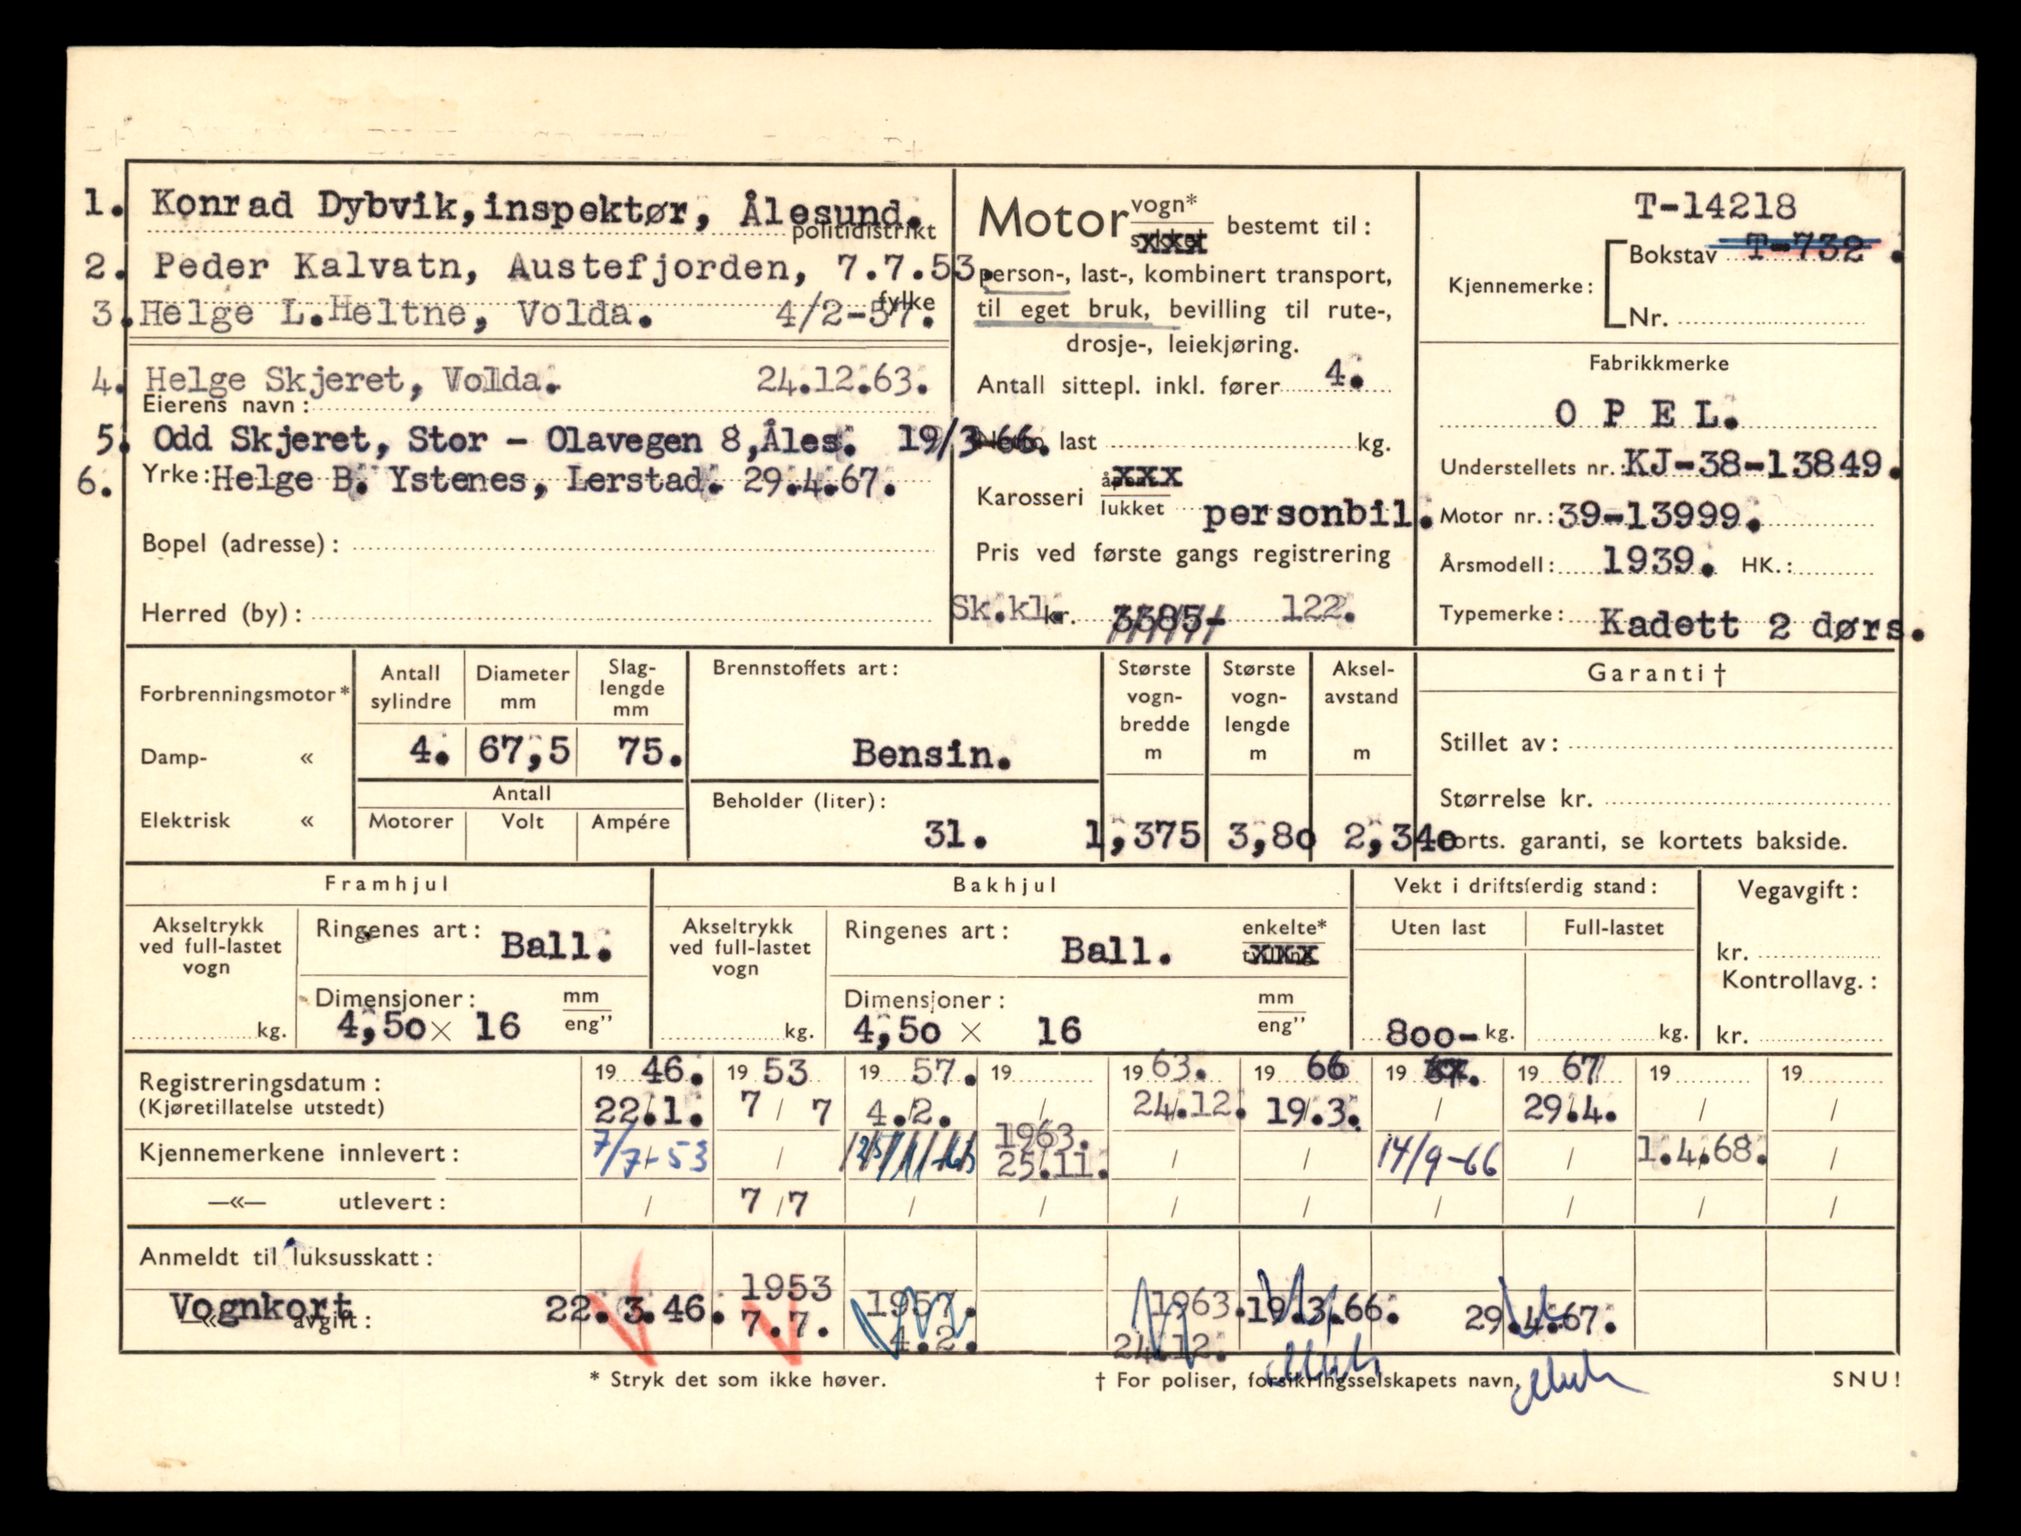 1. Konrad Dybvik, inspektør, Ålesund.
politidistrikt
2. Peder Kalvatn, Austefjorden, 7.7.53.
fylke
3. Helge L. Heltne, Volda. 4/2-57.
4. Helge Skjeret, Volda. 24.12.63.
Eierens navn:
5. Odd Skjeret, Stor - Olavegen 8, Åles. 19/3 66.
6. Yrke: Helge B. Ystenes, Lerstad. 29.4.67.
Bopel (adresse):
Herred (by):
Motor vogn* xxx bestemt til:
person-, last-, kombinert transport,
til eget bruk, bevilling til rute-,
drosje-, leiekjøring.
Antall sittepl. inkl. fører 4.
last kg.
Karosseri xxx lukket personbil.
Pris ved første gangs registrering
Sk.kl. kr. 3385- 122.
T-14218
Kjennemerke: Bokstav T-732.
Nr.
Fabrikkmerke
OPEL.
Understellets nr.: KJ-38-13849.
Motor nr.: 39-13999.
Årsmodell: 1939. HK.:
Typemerke: Kadett 2 dørs.
Forbrenningsmotor*
Damp- «
Elektrisk «
Antall sylindre
4.
Diameter mm
67,5
Slag-lengde mm
75.
Antall
Motorer Volt Ampére
Brennstoffets art:
Bensin.
Beholder (liter):
31.
Største vogn-bredde m
1,375
Største vogn-lengde m
3,80
Aksel-avstand m
2,340
Garanti †
Stillet av:
Størrelse kr.
Forts. garanti, se kortets bakside.
Framhjul
Akseltrykk ved full-lastet vogn
kg.
Ringenes art: Ball.
Dimensjoner: mm eng”
4,50 × 16
Bakhjul
Akseltrykk ved full-lastet vogn
kg.
Ringenes art: Ball. enkelte* xxxx
Dimensjoner: mm eng”
4,50 × 16
Vekt i driftsferdig stand:
Uten last Full-lastet
800- kg. kg.
Vegavgift:
kr.
Kontrollavg.:
kr.
Registreringsdatum: 19 46. 19 53 19 57. 19 19 63. 19 66 19 19 67 19 19
(Kjøretillatelse utstedt) 22.1. 7/7 4.2. / 24.12. 19.3. / 29.4. / /
Kjennemerkene innlevert: 7/7-53 / 1963. 25.11. / / 14/9-66 / 1.4.68. /
—«— utlevert: / 7/7 / / / / / / / /
Anmeldt til luksusskatt:
Vognkort 22.3.46. 1953 7.7. 1957. 4.2. 1963. 24.12. 19.3.66. 29.4.67.
—«— avgift:
* Stryk det som ikke høver.
† For poliser, forsikringsselskapets navn.
SNU!